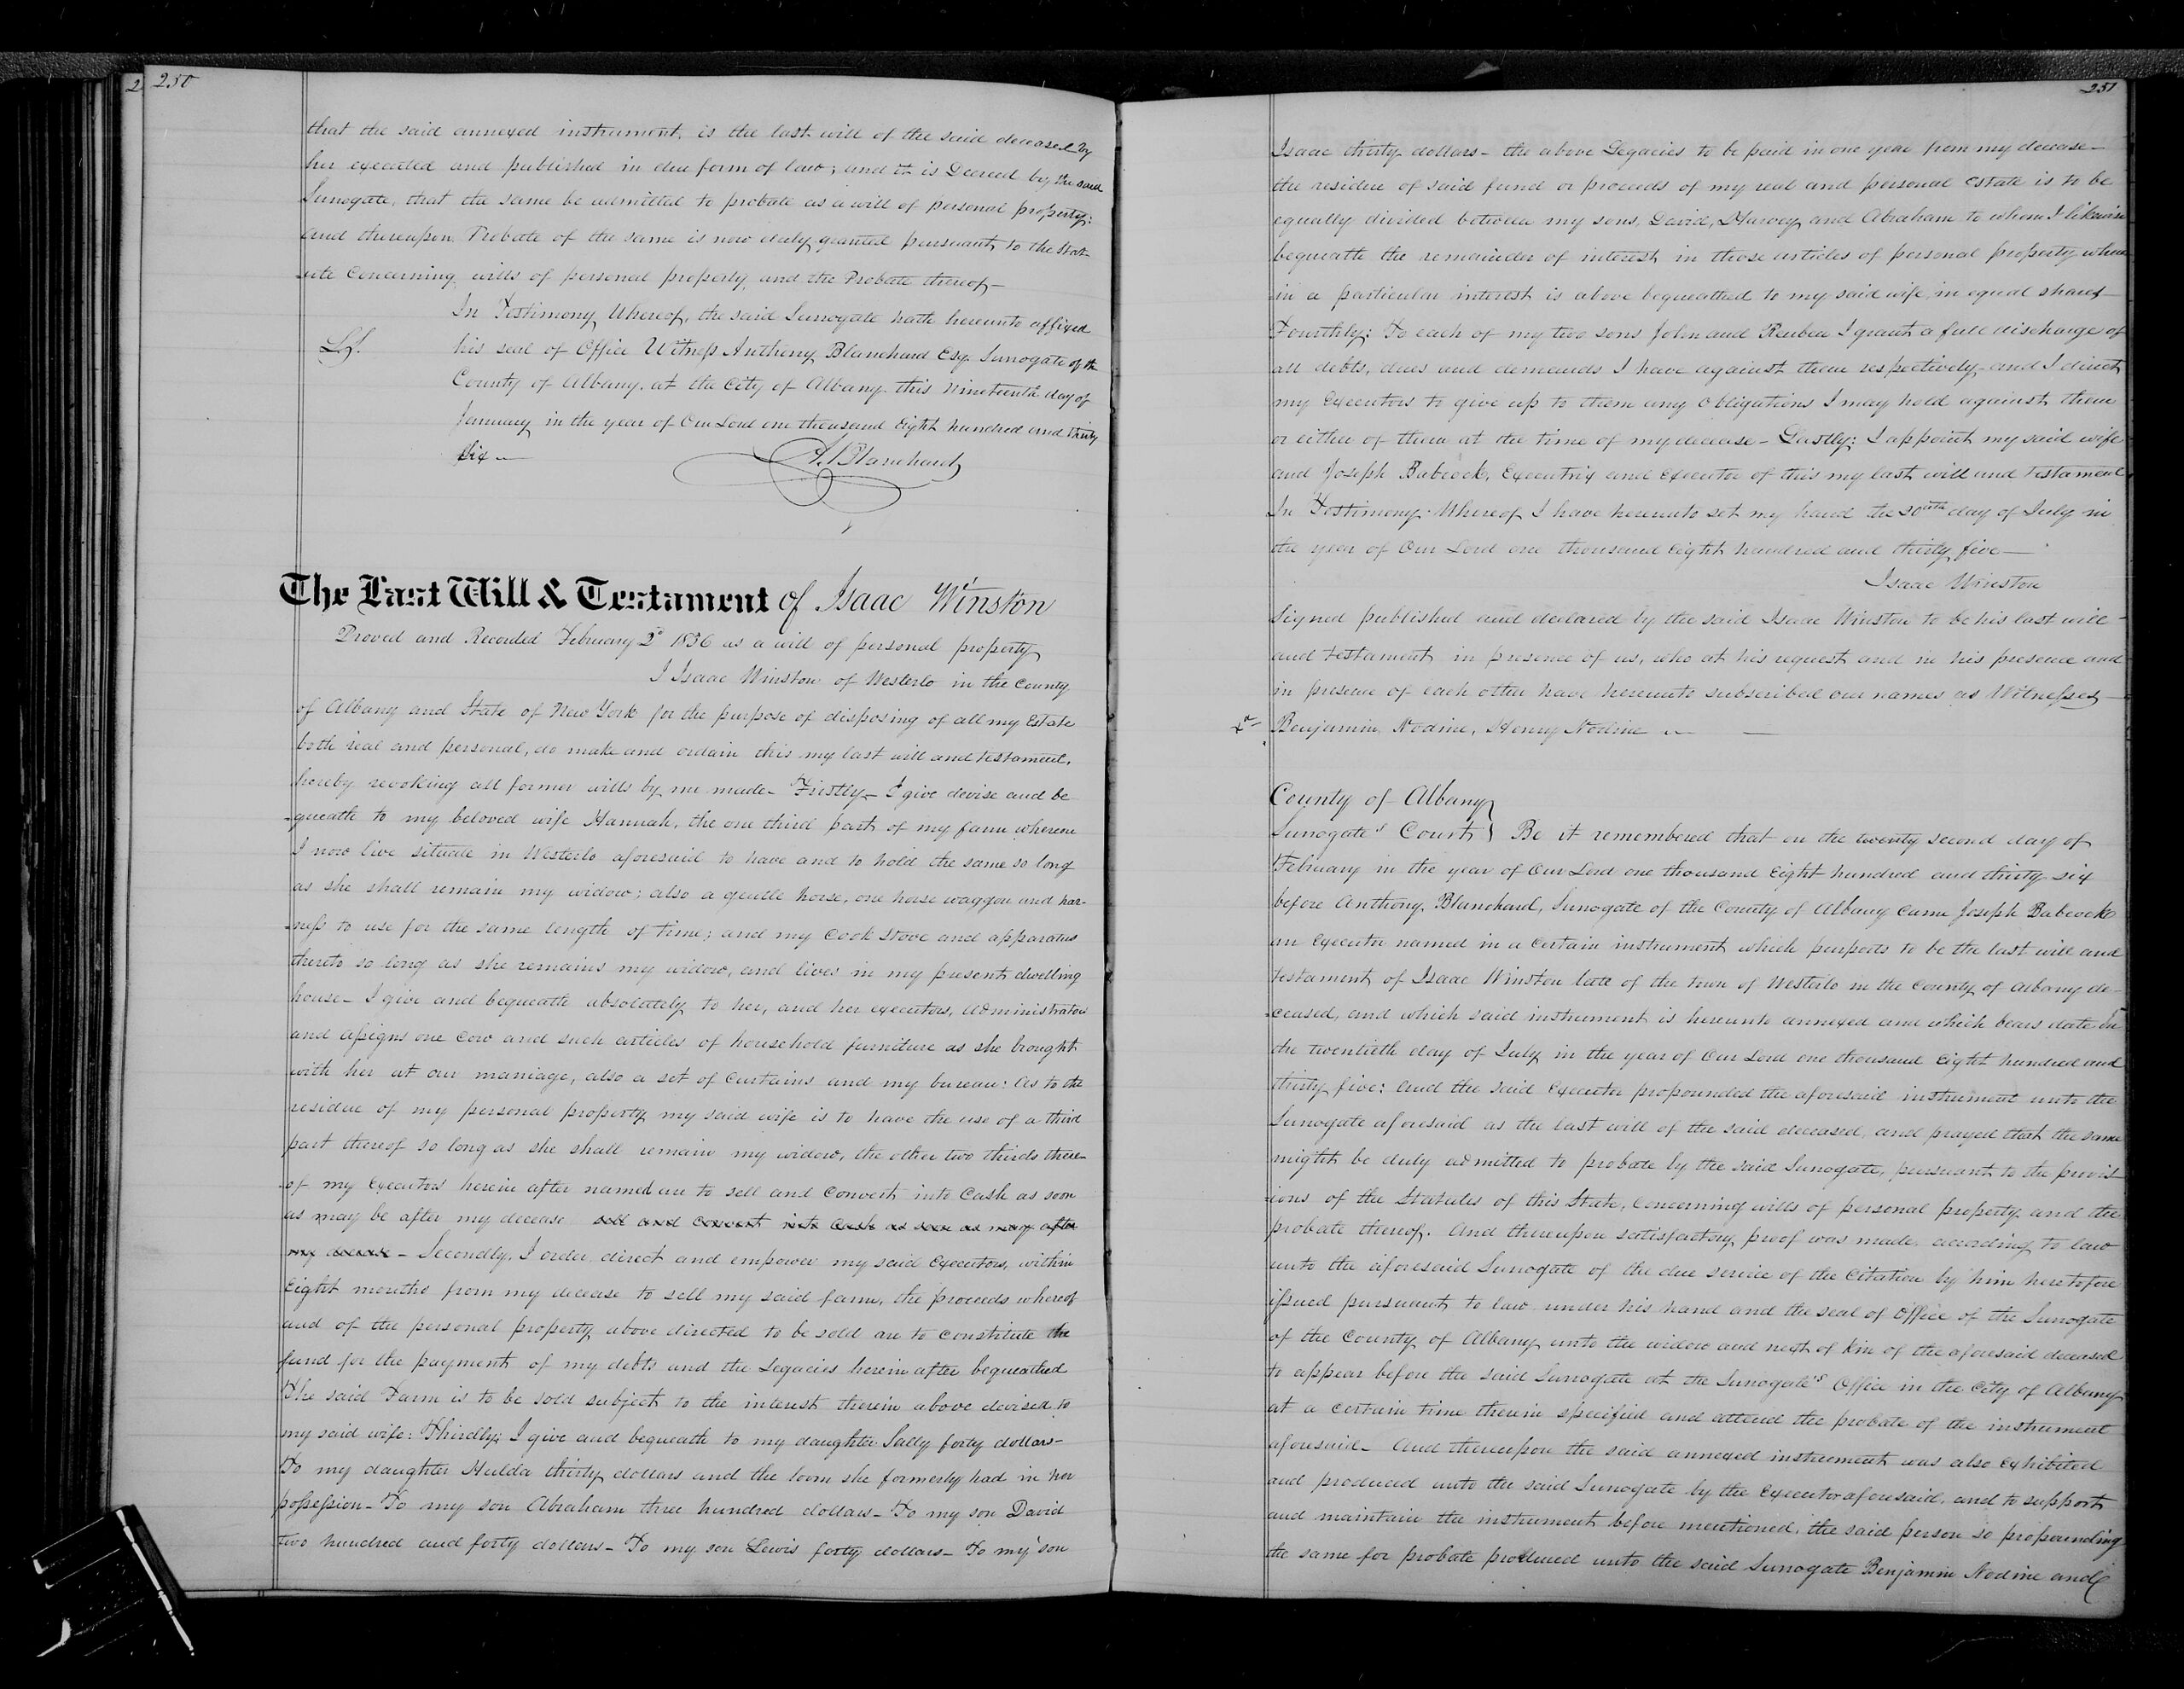 250
that the said annexed instrument, is the last will of the said deceased by
her executed and published in due form of law; and it is Decreed by the said
Surrogate, that the same be admitted to probate as a will of personal property:
and thereupon Probate of the same is now duly granted pursuant to the Stat-
-ute Concerning wills of personal property and the Probate thereof-
In Testimony Whereof, the said Surrogate hath hereunto affixed
L.S. his seal of Office Witness Anthony Blanchard Esq. Surrogate of the
County of Albany. at the City of Albany this Nineteenth day of
January in the year of Our Lord one thousand Eight hundred and thirty
Six —
A. Blanchard
The Last Will & Testament of Isaac Winston
Proved and Recorded February 2d 1836 as a will of personal property
I Isaac Winston of Westerlo in the County
of Albany and State of New York for the purpose of disposing of all my Estate
both real and personal, do make and ordain this my last will and testament,
hereby revoking all former wills by me made- Firstly- I give devise and be
-queath to my beloved wife Hannah, the one third part of my farm whereon
I now live situate in Westerlo aforesaid to have and to hold the same so long
as she shall remain my widow; also a gentle horse, one horse waggon and har-
-ness to use for the same length of time; and my Cook Stove and apparatus
thereto so long as she remains my widow, and lives in my present dwelling
house- I give and bequeath absolutely to her, and her executors, Administrators
and assigns one Cow and such articles of household furniture as she brought
with her at our marriage, also a set of Curtains and my bureau: As to the
residue of my personal property my said wife is to have the use of a third
part thereof so long as she shall remain my widow, the other two thirds there-
-of my Executors herein after named are to sell and Convert into Cash as soon
as may be after my decease sell and convert into Cash as soon as may after
my decease - Secondly, I order, direct and empower my said Executors, within
Eight months from my decease to sell my said farm, the proceeds whereof
and of the personal property above directed to be sold are to constitute the
fund for the payment of my debts and the Legacies herein after bequeathed
The said Farm is to be sold subject to the interest therein above devised to
my said wife: Thirdly; I give and bequeath to my daughter Sally forty dollars-
To my daughter Hulda thirty dollars and the loom she formerly had in her
possession- To my son Abraham three hundred dollars- To my son David
two hundred and forty dollars- To my son Lewis forty dollars- To my son
251
Isaac thirty dollars- the above Legacies to be paid in one year from my decease-
the residue of said fund or proceeds of my real and personal Estate is to be
equally divided between my sons, David, Harvey and Abraham to whom I likewise
bequeath the remainder of interest in those articles of personal property where
in a particular interest is above bequeathed to my said wife, in equal shares-
Fourthly; To each of my two sons John and Reuben I grant a full discharge of
all debts, dues and demands I have against them respectively- and I direct
my Executors to give up to them any Obligations I may hold against them
or either of them at the time of my decease- Lastly; I appoint my said wife
and Joseph Babcock, Executrix and Executor of this my last will and testament
In Testimony Whereof I have hereunto set my hand the 20th day of July in
the year of Our Lord one thousand Eight hundred and thirty five-
Isaac Winston
Signed published and declared by the said Isaac Winston to be his last will-
and testament in presence of us, who at his request and in his presence and
in presence of each other have hereunto subscribed our names as Witnesses-
Benjamin Nodine, Henry Nodine
County of Albany
Surrogate's Court } Be it remembered that on the twenty second day of
February in the year of Our Lord one thousand Eight hundred and thirty six
before Anthony Blanchard, Surrogate of the County of Albany came Joseph Babcock
an Executor named in a certain instrument which purports to be the last will and
testament of Isaac Winston late of the town of Westerlo in the County of Albany de-
-ceased, and which said instrument is hereunto annexed and which bears date
the twentieth day of July in the year of Our Lord one thousand Eight hundred and
thirty five: And the said Executor propounded the aforesaid instrument unto the
Surrogate aforesaid as the last will of the said deceased, and prayed that the same
might be duly admitted to probate by the said Surrogate, pursuant to the provis
-ions of the Statutes of this State, Concerning wills of personal property and the
probate thereof. And thereupon satisfactory proof was made, according to law
unto the aforesaid Surrogate of the due service of the Citation by him heretofore
issued pursuant to law under his hand and the seal of Office of the Surrogate
of the County of Albany unto the widow and next of kin of the aforesaid deceased
to appear before the said Surrogate at the Surrogate's Office in the City of Albany
at a certain time therein specified and attend the probate of the instrument
aforesaid- And thereupon the said annexed instrument was also exhibited
and produced unto the said Surrogate by the Executor aforesaid, and to support
and maintain the instrument before mentioned, the said person so propounding
the same for probate produced unto the said Surrogate Benjamin Nodine and